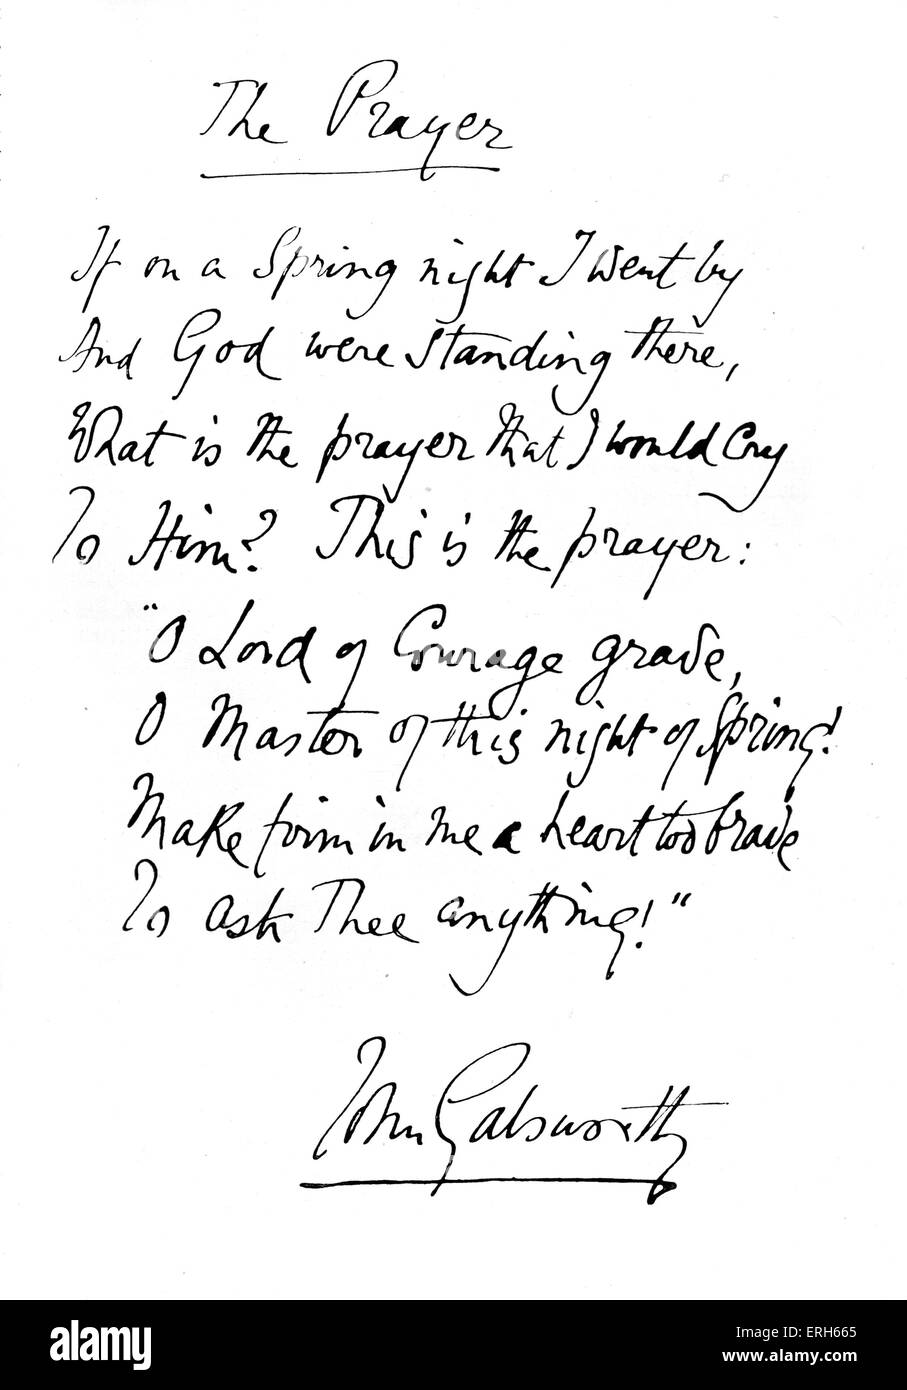 The Prayer
If on a Spring night I went by
And God were standing there,
What is the prayer that I would Cry
To Him? This is the prayer:
"O Lord of Courage grave,
O Master of this night of Spring!
Make firm in me a heart too brave
To ask Thee anything!"
John Galsworthy
alamy
alamy
Image ID: ERH665
www.alamy.com